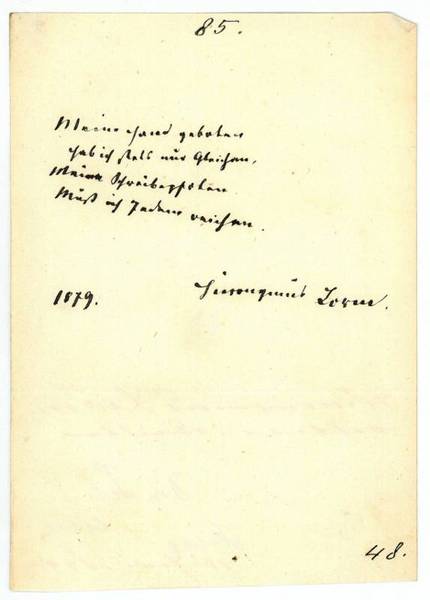 85.
Meine Hand geboten
Hab ich stets nur Gleichen,
Meine Schreibepfoten
Muß ich Jedem reichen.
1879. Hieronymus Lorm.
48.